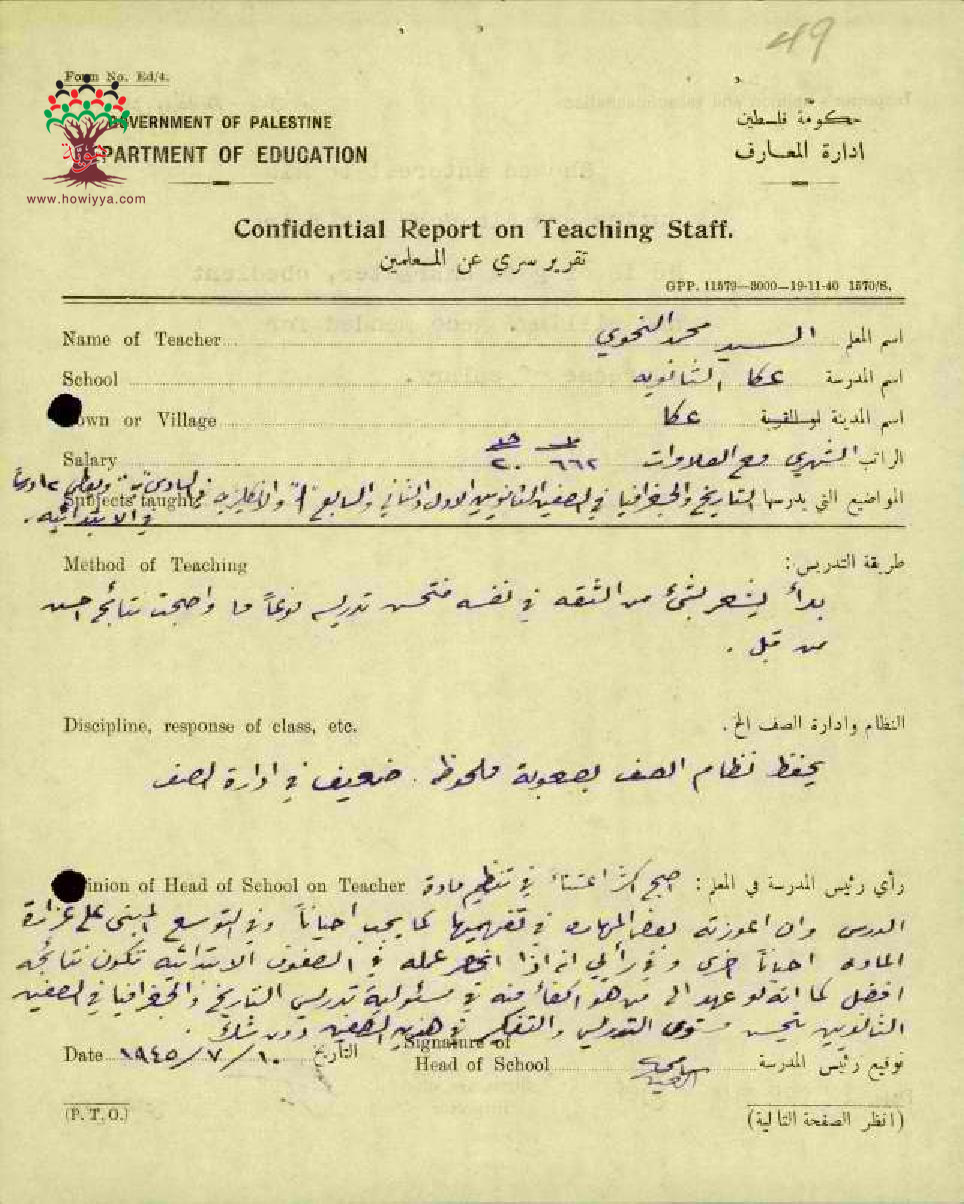 49
Form No. Ed/4.
GOVERNMENT OF PALESTINE
حكومة فلسطين
DEPARTMENT OF EDUCATION
ادارة المعارف
هوية
www.howiyya.com
Confidential Report on Teaching Staff.
تقرير سري عن المعلمين
GPP. 11579—3000—19-11-40 1570/S.
Name of Teacher السيد محمد النحوي اسم المعلم
School عكا الثانويه اسم المدرسة
Town or Village عكا اسم المدينة او القرية
Salary الشهري مع العلاوات الراتب
Subjects taught التاريخ والجغرافيا في الصفين الثانويين الاول والثاني والسابع "أ" والانكليزيه في السادس المواضيع التي يدرسها
في الابتدائيه.
Method of Teaching طريقة التدريس:
بدأ يشعر بشيء من الثقه في نفسه فتحسن تدريسه نوعاً ما واصبحت نتائجه احسن
من قبل .
Discipline, response of class, etc. النظام وادارة الصف الخ.
يحفظ نظام الصف بصعوبة ملحوظه . ضعيف في ادارة الصف
Opinion of Head of School on Teacher رأي رئيس المدرسة في المعلم: اصبح اكثر اعتناءً في تنظيم مادة
الدرس وان اعوزته بعض المهاره في تفهيمها كما يجب احياناً وفي التوسع المبني على غزارة
الماده احياناً اخرى وفي رأيي انه اذا انحصر عمله في الصفوف الابتدائيه تكون نتائجه
افضل كما انه لو عهد الى من هو اكفأ منه في مسئولية تدريس التاريخ والجغرافيا في الصفين
الثانويين يتحسن مستوى التدريس والتفكير في هذين الصفين دون شك .
Date ١٠/٧/١٩٤٥ التاريخ
Signature of
Head of School توقيع رئيس المدرسة
(P. T. O.) (انظر الصفحة التالية)